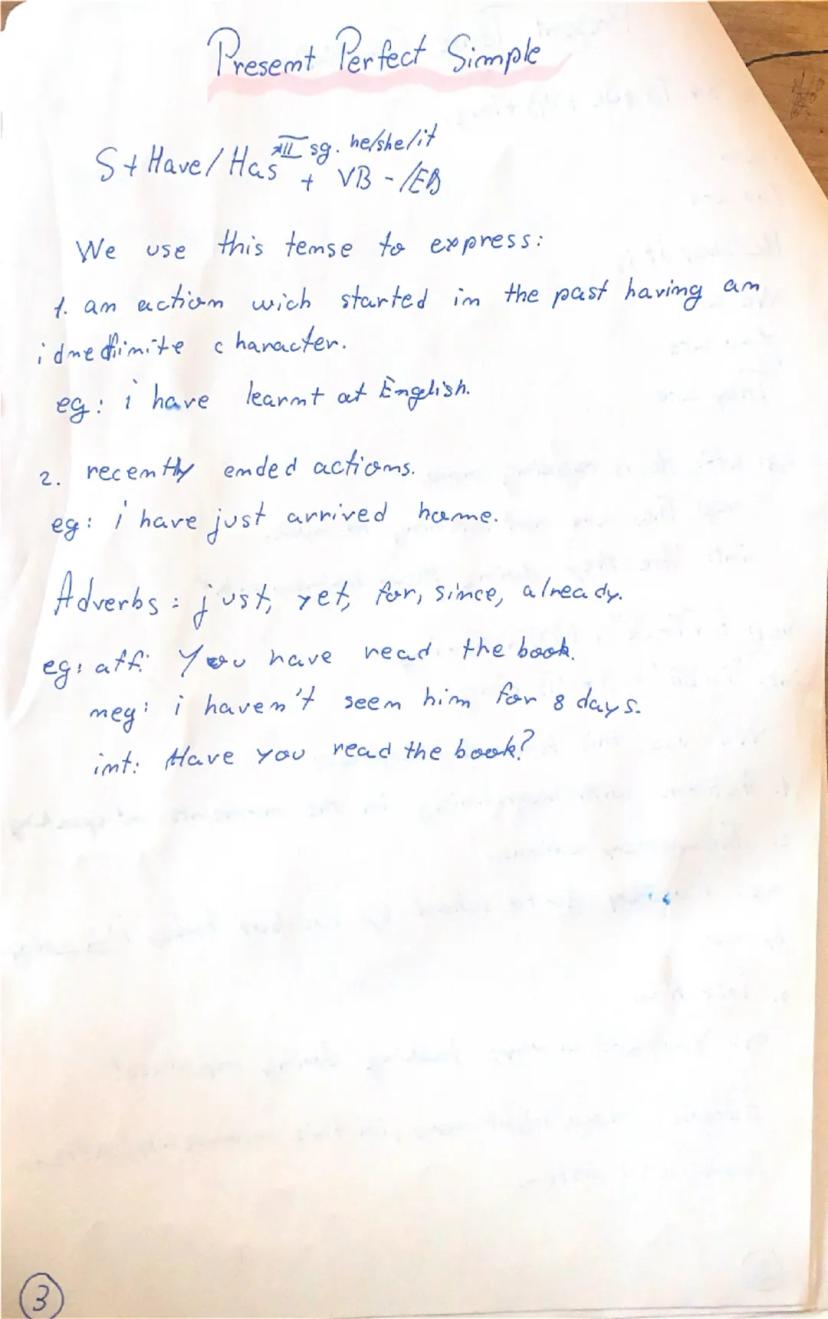 Present Perfect Simple
S + Have / Has III sg. he/she/it
+ VB - /ED
We use this tense to express:
1. an action wich started in the past having an
idnedfinite character.
eg: i have learnt at English.
2. recently ended actions.
eg: i have just arrived home.
Adverbs: just, yet, for, since, already.
eg: aff: You have read the book.
neg: i haven't seen him for 8 days.
int: Have you read the book?
3